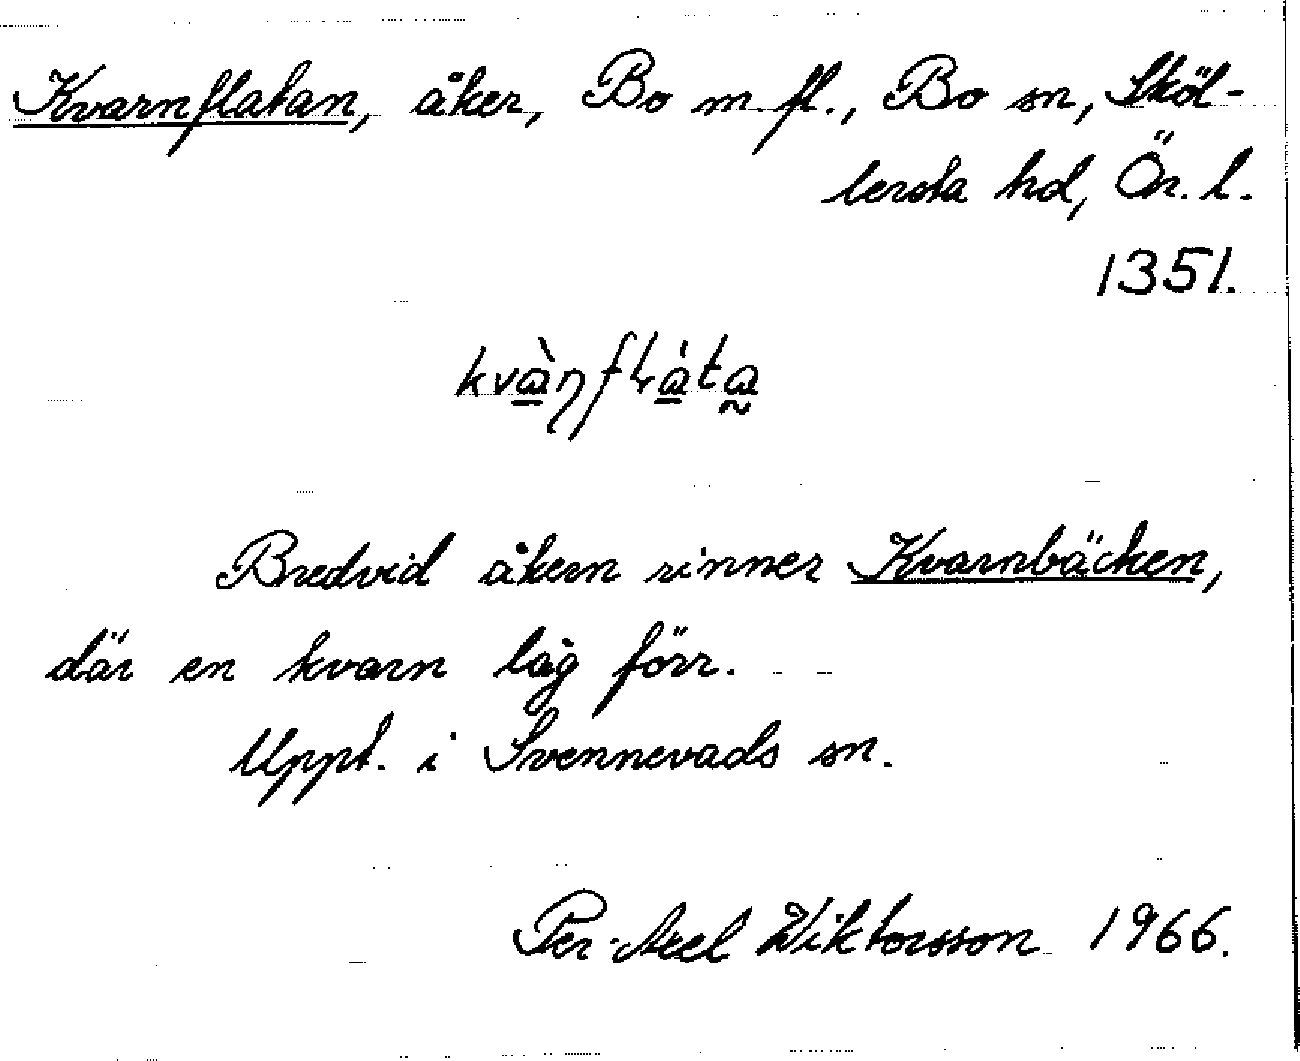 Kvarnflatan, åker, Bo m fl., Bo sn, Sköl-
lersta hd, Ör. l.
1351.
Bredvid åkern rinner Kvarnbäcken,
där en kvarn låg förr.
Uppt. i Svennevads sn.
Per-Axel Wiktorsson 1966.